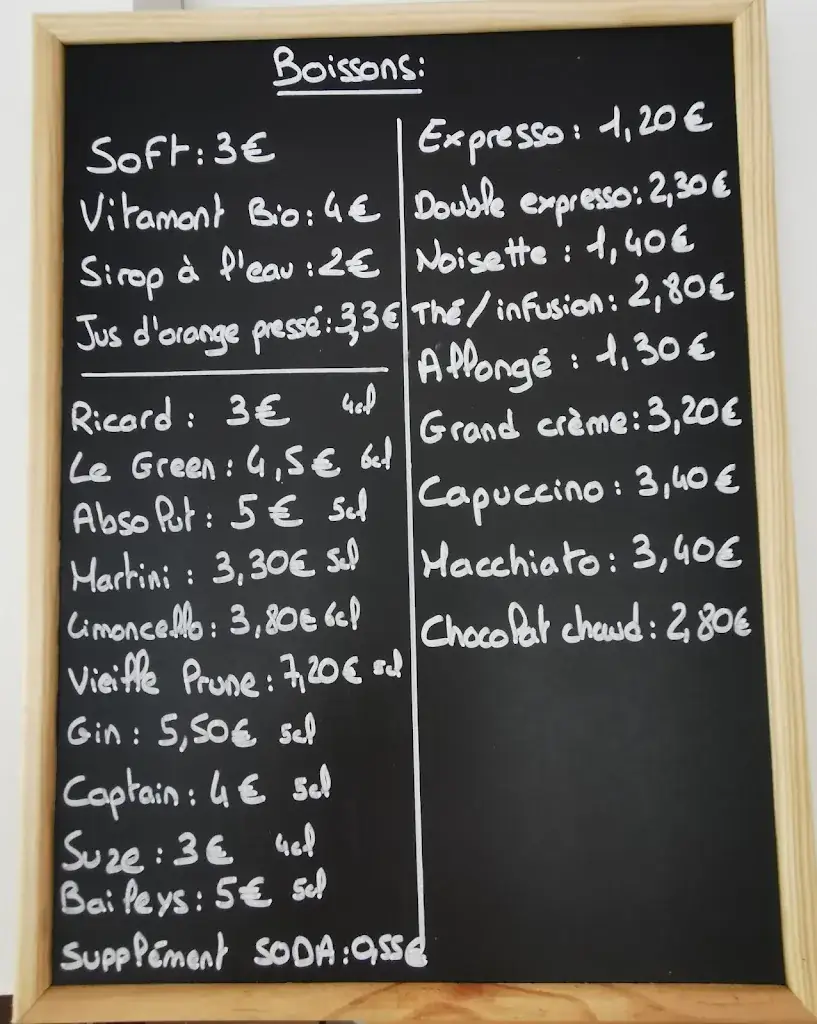 Boissons:
Soft: 3€
Vitamont Bio: 4€
Sirop à l'eau: 2€
Jus d'orange pressé: 3,3€
Ricard: 3€ 4cl
Le Green: 4,5€ 6cl
Absolut: 5€ 5cl
Martini: 3,30€ 5cl
Limoncello: 3,80€ 6cl
Vieille Prune: 7,20€ 5cl
Gin: 5,50€ 5cl
Captain: 4€ 5cl
Suze: 3€ 4cl
Baileys: 5€ 5cl
Supplément SODA: 0,55€
Expresso: 1,20€
Double expresso: 2,30€
Noisette: 1,40€
Thé/infusion: 2,80€
Allongé: 1,30€
Grand crème: 3,20€
Capuccino: 3,40€
Macchiato: 3,40€
Chocolat chaud: 2,80€